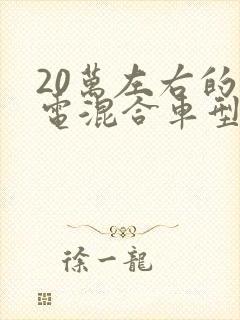 20萬左右的
電混合車型
徐一龍